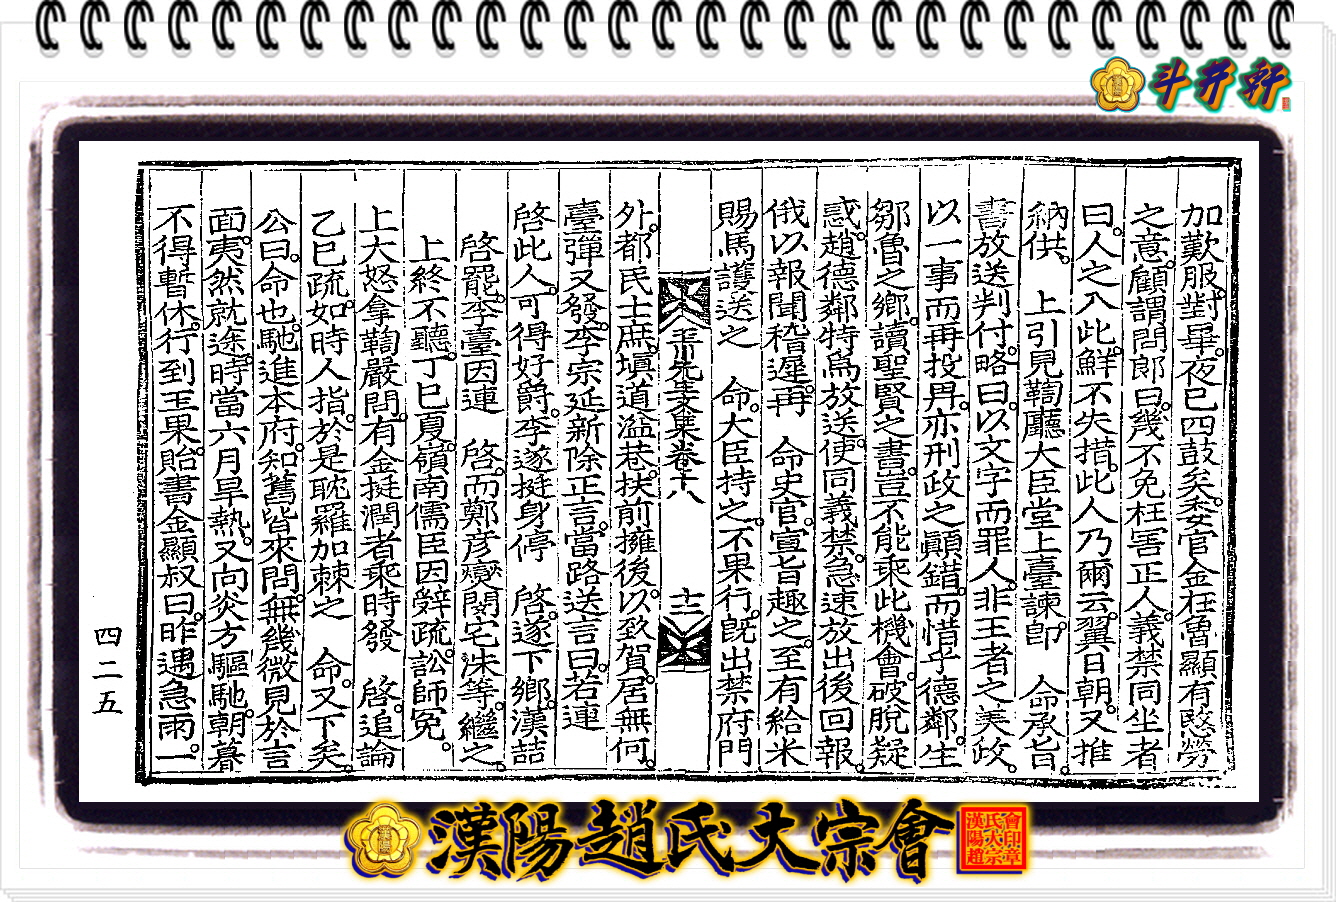 斗井軒
加歎服對畢夜已四鼓矣委官金在魯顯有慇勞
之意顧謂問郞曰幾不免枉害正人義禁同坐者
曰人之入此鮮不失措此人乃爾云翼日朝又推
納供 上引見鞫廳大臣堂上臺諫卽 命承旨
書放送判付略曰以文字而罪人非王者之美政
以一事而再投畀亦刑政之顚錯而惜乎德鄰生
鄒魯之鄕讀聖賢之書豈不能乘此機會破脫疑
惑趙德鄰特爲放送使同義禁急速放出後回報
俄以報聞稽遲再 命史官宣旨趣之至有給米
賜馬護送之 命大臣持之不果行旣出禁府門
先生文集卷十八 十二
外都民士庶塡道溢巷扶前擁後以致賀居無何
臺彈又發李宗延新除正言當路送言曰若連
啓此人可得好爵李遂挺身停 啓遂下鄕漢喆
啓罷李臺因連 啓而鄭彦燮閔宅洙等繼之
上終不聽丁巳夏嶺南儒臣因辭疏訟師冤
上大怒拿鞫嚴問有金挺潤者乘時發 啓追論
乙巳疏如時人指於是耽羅加棘之 命又下矣
公曰命也馳進本府知舊皆來問無幾微見於言
面夷然就途時當六月旱熱又向炎方驅馳朝暮
不得暫休行到王果貽書金顯叔曰昨遇急雨一
四二五
漢陽趙氏大宗會
漢陽趙氏大宗會印章